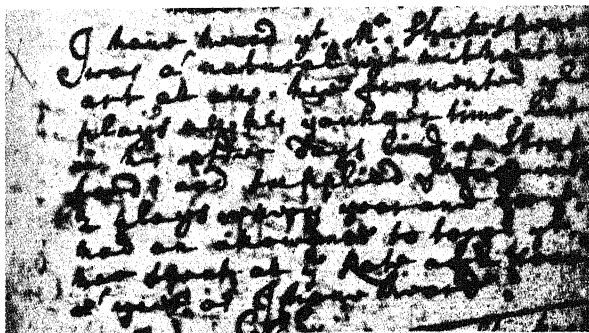 I haue heard yt Mr. Shakespeare
was a natural wit without any
art at all. hee frequented ye
plays all his younger time, but
in his elder days liued at Strat
ford: and supplied ye stage with
2 plays euery year and for yt
had an allowance so large yt
hee spent at ye Rate of
a year as I haue heard.